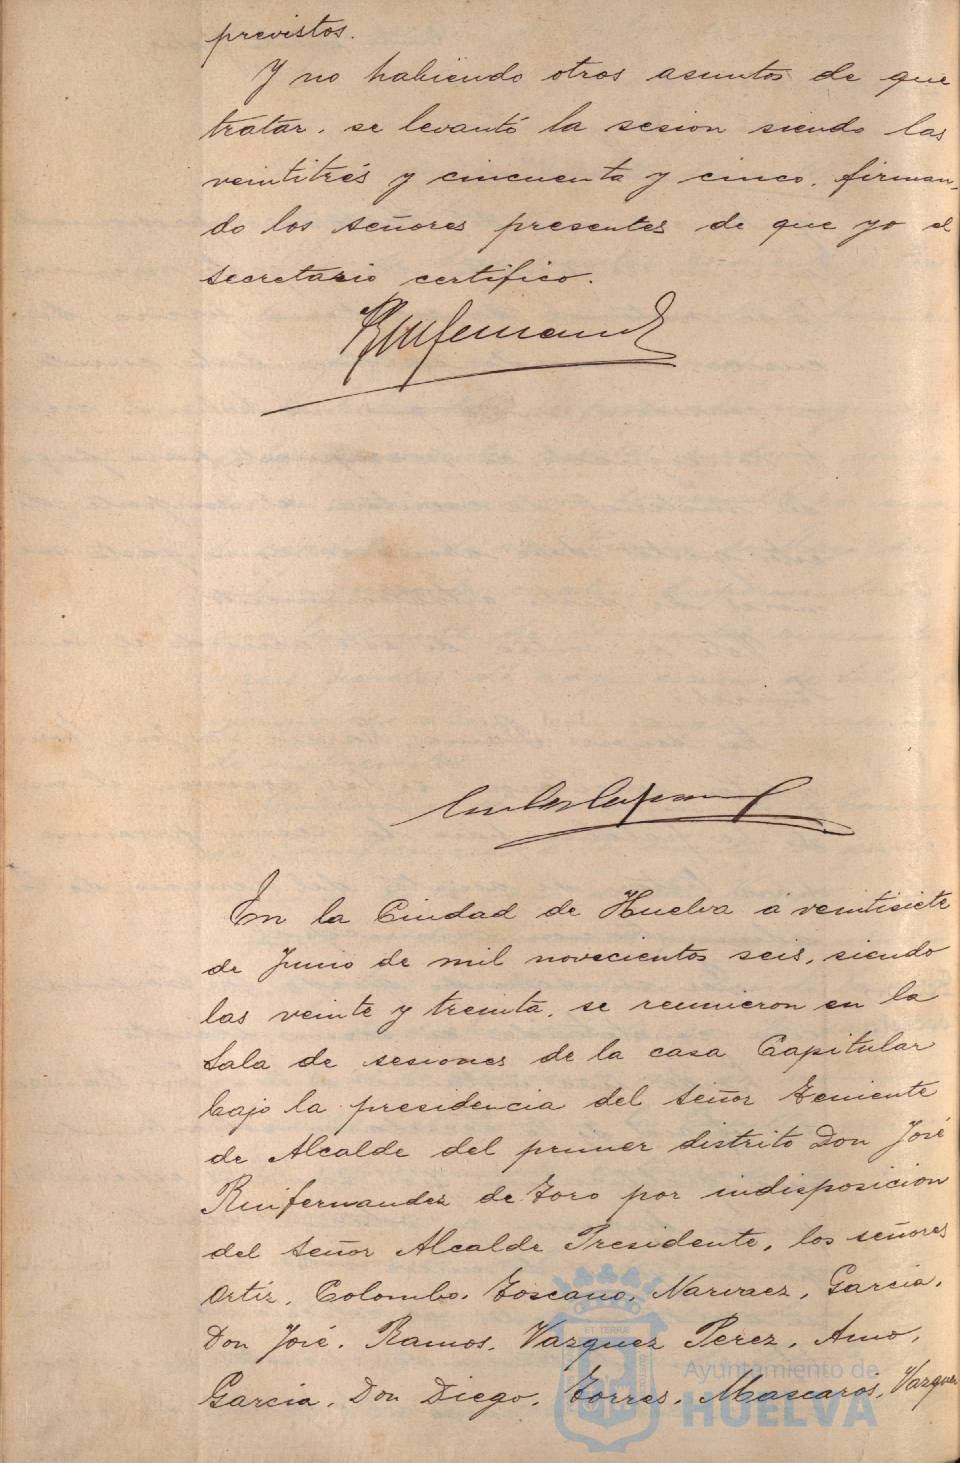 previstos.
Y no habiendo otros asuntos de que
tratar, se levantó la sesion siendo las
veintitrés y cincuenta y cinco, firman-
do los señores presentes de que yo el
secretario certifico.
En la Ciudad de Huelva á veintisiete
de Junio de mil novecientos seis, siendo
las veinte y treinta, se reunieron en la
Sala de sesiones de la casa Capitular
bajo la presidencia del Señor Teniente
de Alcalde del primer distrito Don José
Ruifernandez de Toro por indisposicion
del Señor Alcalde Presidente, los señores
Ortiz, Colombo, Toscano, Narvaez, Garcia,
Don José, Ramos, Vazquez Perez, Amo,
Garcia, Don Diego, Torres, Mascaros, Vazquez
Ayuntamiento de
HUELVA